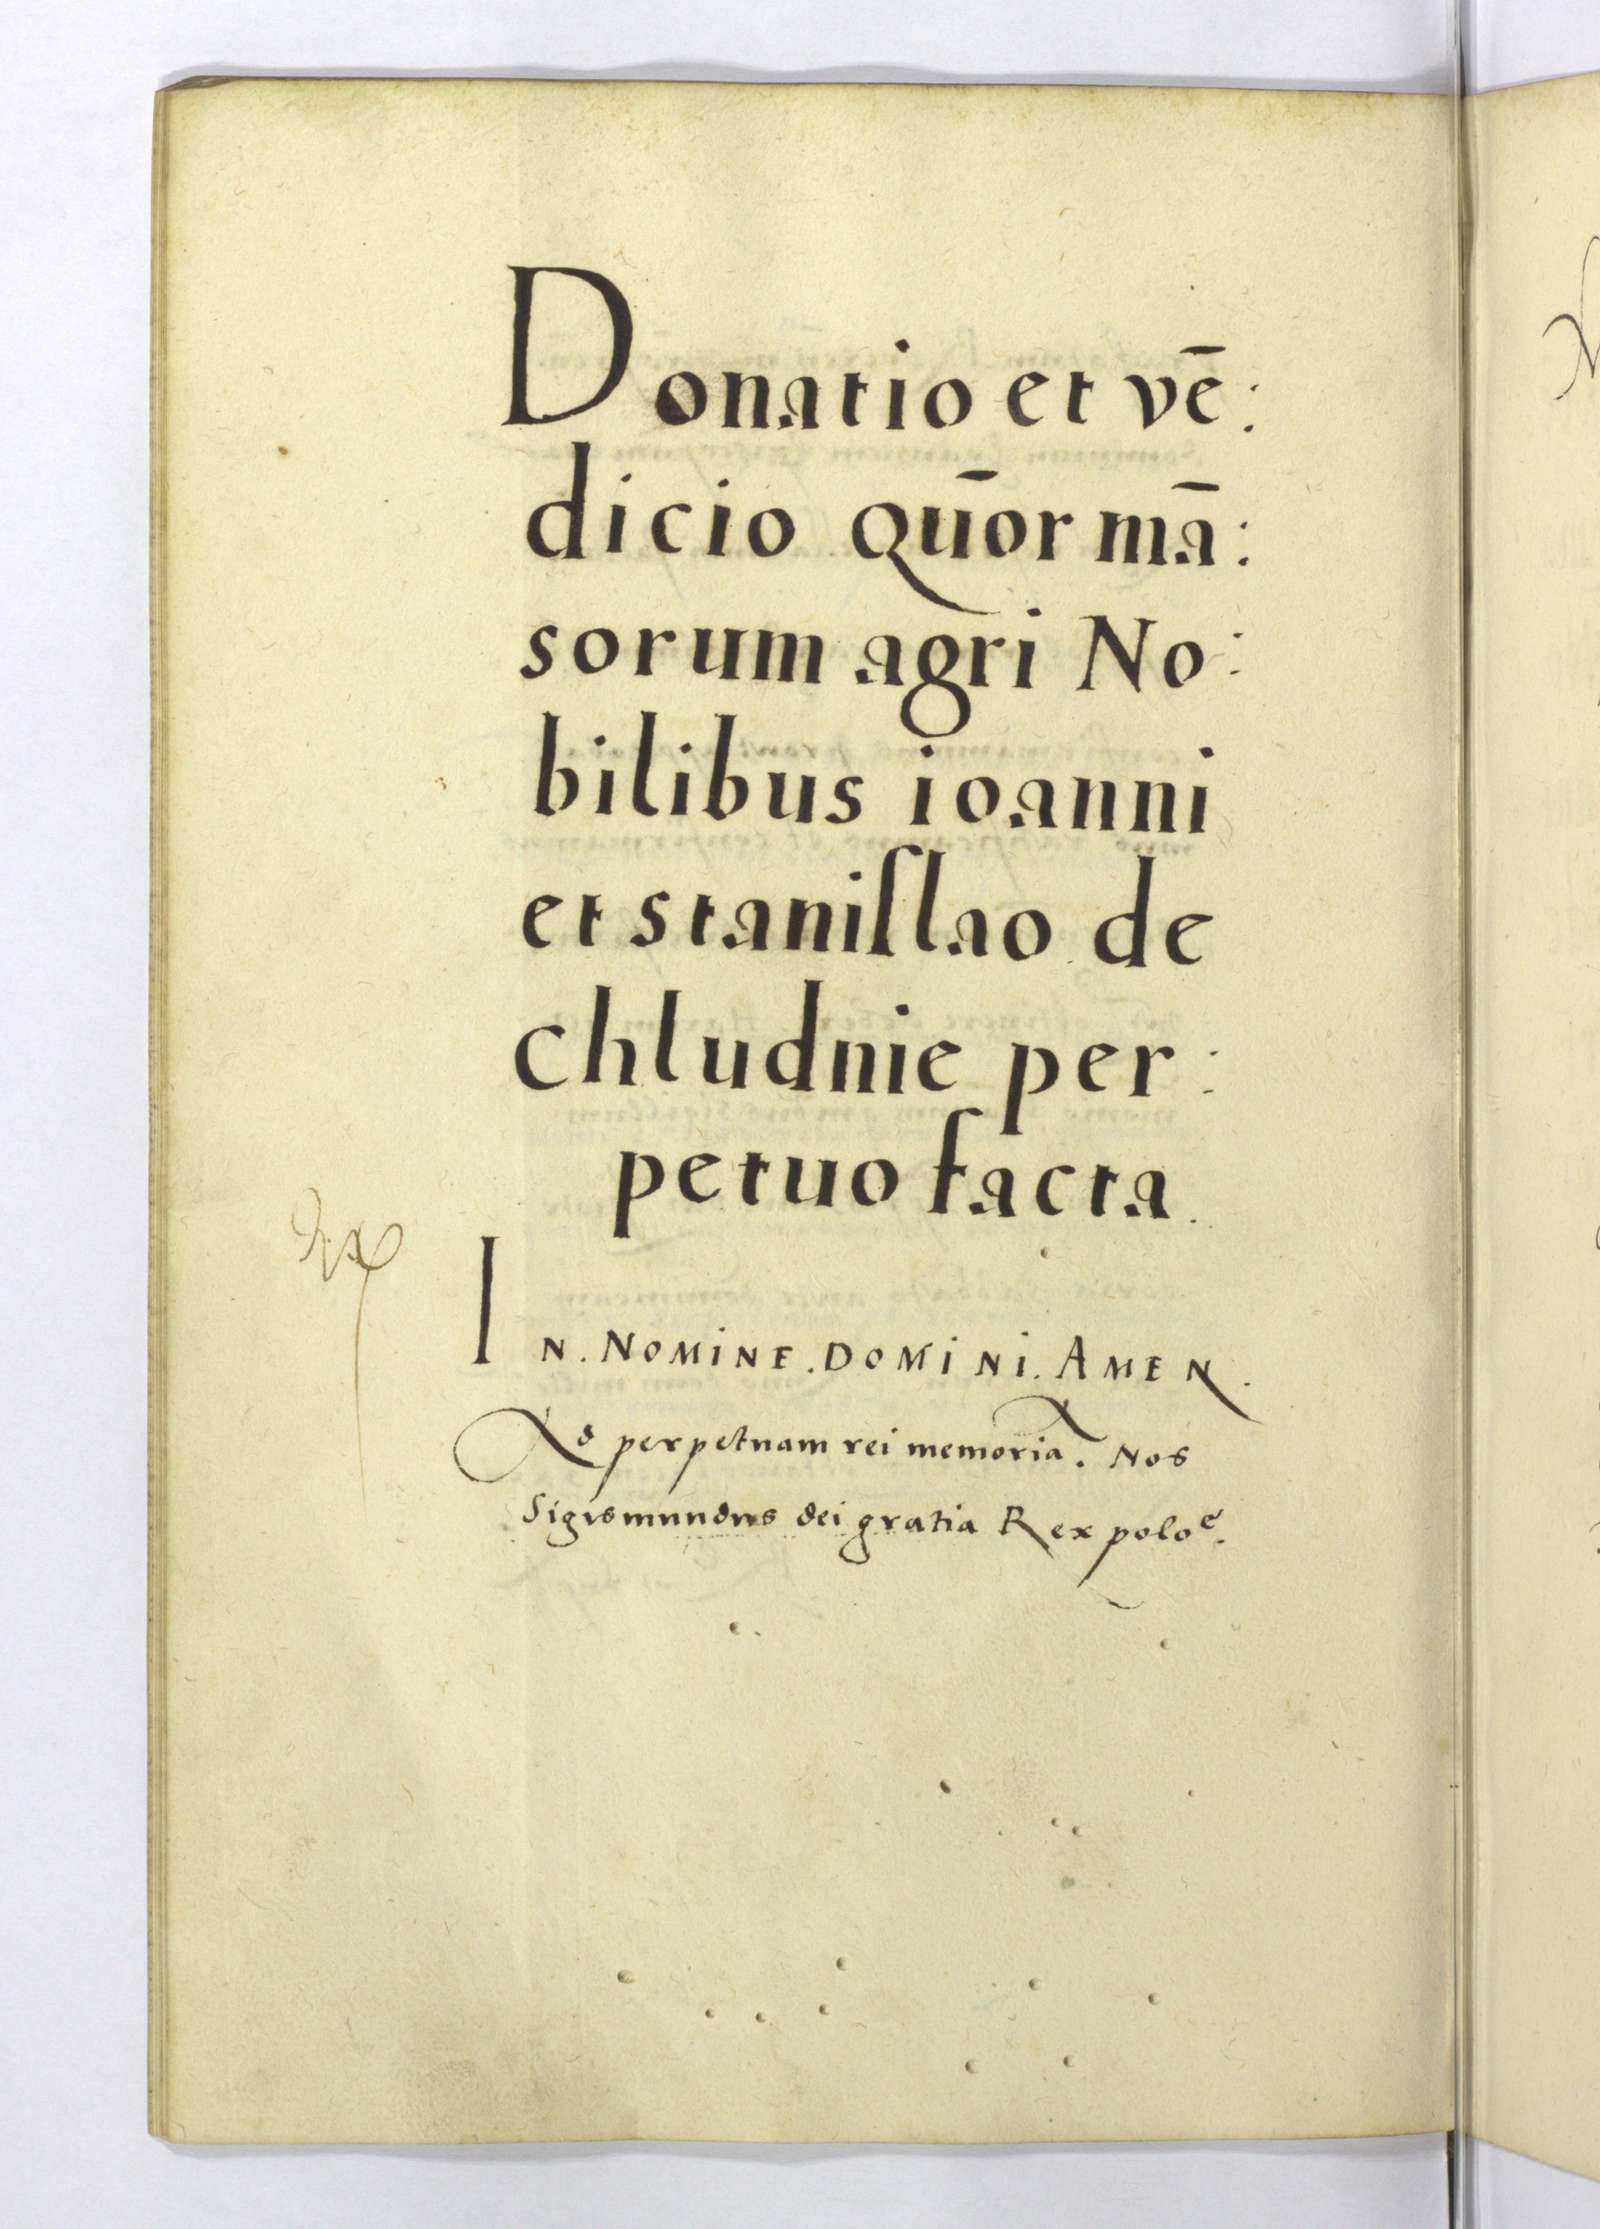 Donatio et vē:
dicio qūor mā:
sorum agri No:
bilibus ioanni
et staniſlao de
chludnie per:
petuo facta.
In. Nomine. Domini. Amen.
Ad perpetuam rei memoria. Nos
Sigismundus dei gratia Rex poloᵉ.